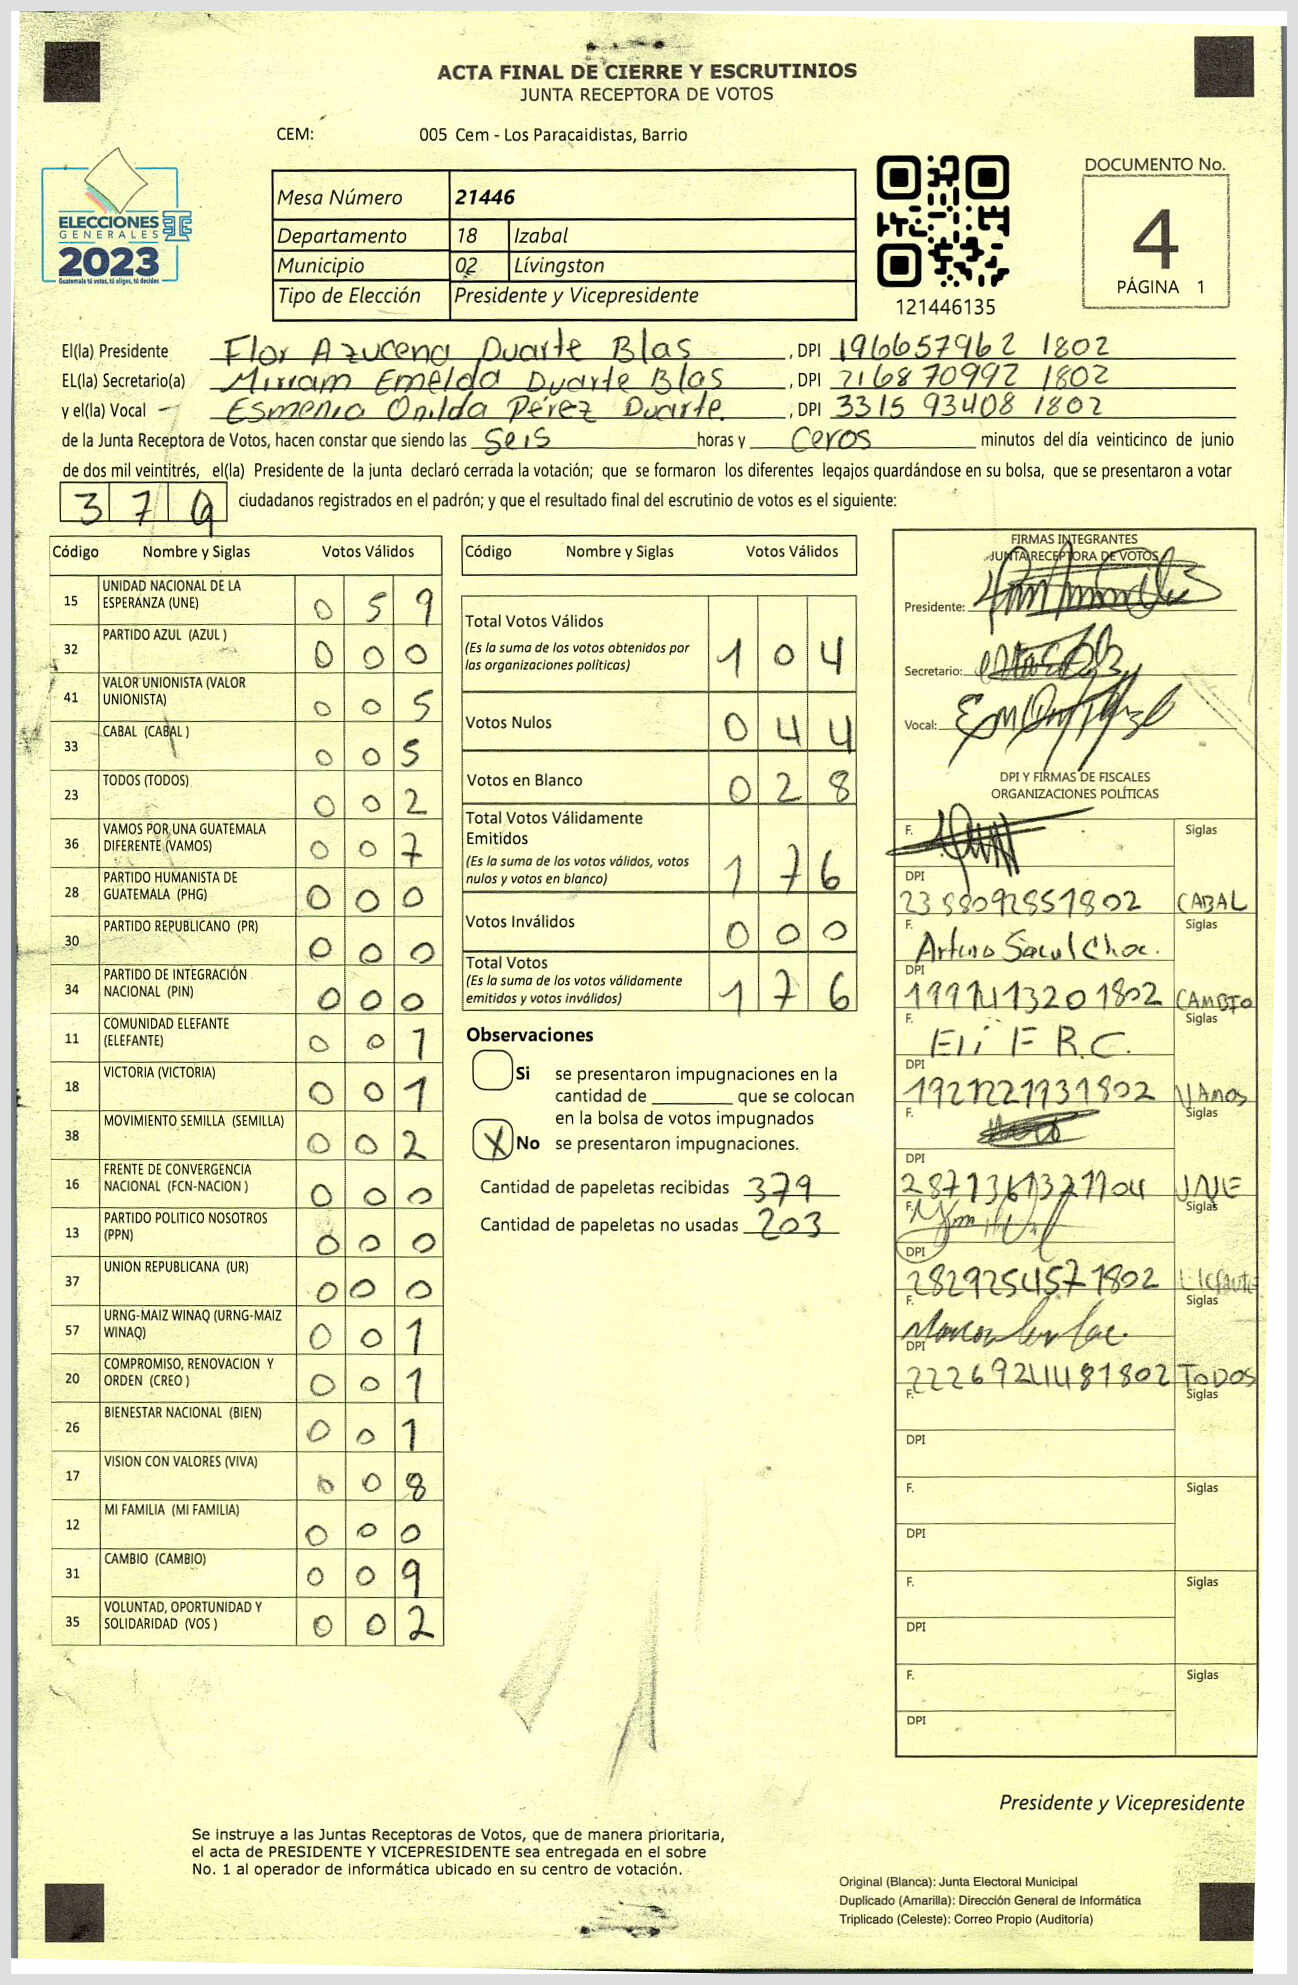 ACTA FINAL DE CIERRE Y ESCRUTINIOS
JUNTA RECEPTORA DE VOTOS
CEM: 005 Cem - Los Paracaidistas, Barrio
DOCUMENTO No.
4
PÁGINA 1
ELECCIONES
GENERALES
2023
Guatemala tú votas, tú eliges, tú decides
Mesa Número 21446
Departamento 18 Izabal
Municipio 02 Lívingston
Tipo de Elección Presidente y Vicepresidente
121446135
El(la) Presidente Flor Azucena Duarte Blas , DPI 196657962 1802
EL(la) Secretario(a) Mirram Emelda Duarte Blas , DPI 216870992 1802
y el(la) Vocal Esmenia Onilda Pérez Duarte , DPI 3315 93408 1802
de la Junta Receptora de Votos, hacen constar que siendo las Seis horas y Ceros minutos del día veinticinco de junio
de dos mil veintitrés, el(la) Presidente de la junta declaró cerrada la votación; que se formaron los diferentes legajos guardándose en su bolsa, que se presentaron a votar
37 ciudadanos registrados en el padrón; y que el resultado final del escrutinio de votos es el siguiente:
Código Nombre y Siglas Votos Válidos
15 UNIDAD NACIONAL DE LA ESPERANZA (UNE) 0 5 9
32 PARTIDO AZUL (AZUL ) 0 0 0
41 VALOR UNIONISTA (VALOR UNIONISTA) 0 0 5
33 CABAL (CABAL ) 0 0 5
23 TODOS (TODOS) 0 0 2
36 VAMOS POR UNA GUATEMALA DIFERENTE (VAMOS) 0 0 7
28 PARTIDO HUMANISTA DE GUATEMALA (PHG) 0 0 0
30 PARTIDO REPUBLICANO (PR) 0 0 0
34 PARTIDO DE INTEGRACIÓN NACIONAL (PIN) 0 0 0
11 COMUNIDAD ELEFANTE (ELEFANTE) 0 0 1
18 VICTORIA (VICTORIA) 0 0 1
38 MOVIMIENTO SEMILLA (SEMILLA) 0 0 2
16 FRENTE DE CONVERGENCIA NACIONAL (FCN-NACION ) 0 0 0
13 PARTIDO POLITICO NOSOTROS (PPN) 0 0 0
37 UNION REPUBLICANA (UR) 0 0 0
57 URNG-MAIZ WINAQ (URNG-MAIZ WINAQ) 0 0 1
20 COMPROMISO, RENOVACION Y ORDEN (CREO ) 0 0 1
26 BIENESTAR NACIONAL (BIEN) 0 0 1
17 VISION CON VALORES (VIVA) 0 0 8
12 MI FAMILIA (MI FAMILIA) 0 0 0
31 CAMBIO (CAMBIO) 0 0 9
35 VOLUNTAD, OPORTUNIDAD Y SOLIDARIDAD (VOS ) 0 0 2
Código Nombre y Siglas Votos Válidos
Total Votos Válidos 1 0 4
(Es la suma de los votos obtenidos por
las organizaciones políticas)
Votos Nulos 0 4 4
Votos en Blanco 0 2 8
Total Votos Válidamente
Emitidos 1 7 6
(Es la suma de los votos válidos, votos
nulos y votos en blanco)
Votos Inválidos 0 0 0
Total Votos 1 7 6
(Es la suma de los votos válidamente
emitidos y votos inválidos)
Observaciones
Si se presentaron impugnaciones en la
cantidad de ________ que se colocan
en la bolsa de votos impugnados
X No se presentaron impugnaciones.
Cantidad de papeletas recibidas 379
Cantidad de papeletas no usadas 203
FIRMAS INTEGRANTES
JUNTA RECEPTORA DE VOTOS
Presidente:
Secretario:
Vocal:
DPI Y FIRMAS DE FISCALES
ORGANIZACIONES POLÍTICAS
F. Siglas
DPI 2388092851802 CABAL
F. Arturo Sacul Choc. Siglas
DPI CAMBIO
F. Eli F R.C. Siglas
DPI VAMOS
F. Siglas
DPI UNE
F. Siglas
DPI 2829254571802 Elefante
F. Siglas
DPI TODOS
F. Siglas
DPI
F. Siglas
DPI
F. Siglas
DPI
F. Siglas
DPI
Presidente y Vicepresidente
Se instruye a las Juntas Receptoras de Votos, que de manera prioritaria,
el acta de PRESIDENTE Y VICEPRESIDENTE sea entregada en el sobre
No. 1 al operador de informática ubicado en su centro de votación.
Original (Blanca): Junta Electoral Municipal
Duplicado (Amarilla): Dirección General de Informática
Triplicado (Celeste): Correo Propio (Auditoría)